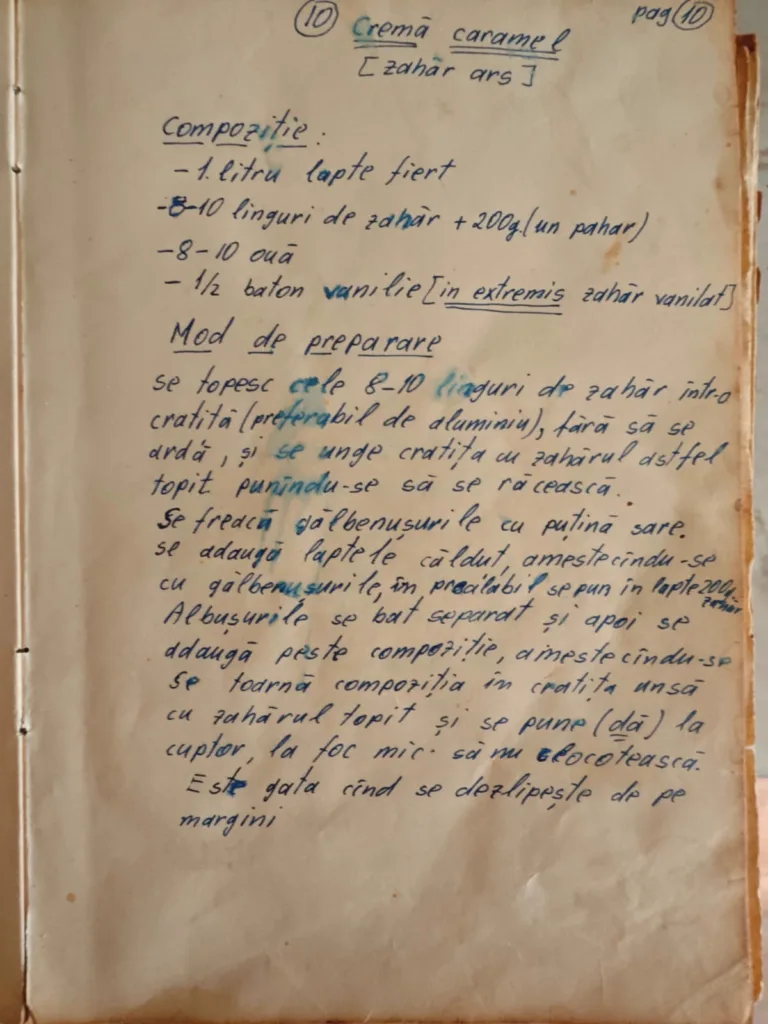 10 Cremă caramel pag 10
[zahăr ars]
Compoziție:
- 1. litru lapte fiert
- 8-10 linguri de zahăr + 200g. (un pahar)
- 8-10 ouă
- 1/2 baton vanilie [in extremis zahăr vanilat]
Mod de preparare
se topesc cele 8-10 linguri de zahăr într-o
cratiță (preferabil de aluminiu), fără să se
ardă, și se unge cratița cu zahărul astfel
topit punîndu-se să se răcească.
Se freacă gălbenușurile cu puțină sare.
se adaugă laptele căldut, amestecîndu-se
cu gălbenușurile, în prealabil se pun în lapte 200g.
zahăr
Albușurile se bat separat și apoi se
adaugă peste compoziție, amestecîndu-se
Se toarnă compoziția în cratița unsă
cu zahărul topit și se pune (dă) la
cuptor, la foc mic. să nu clocotească.
Este gata cînd se dezlipește de pe
margini